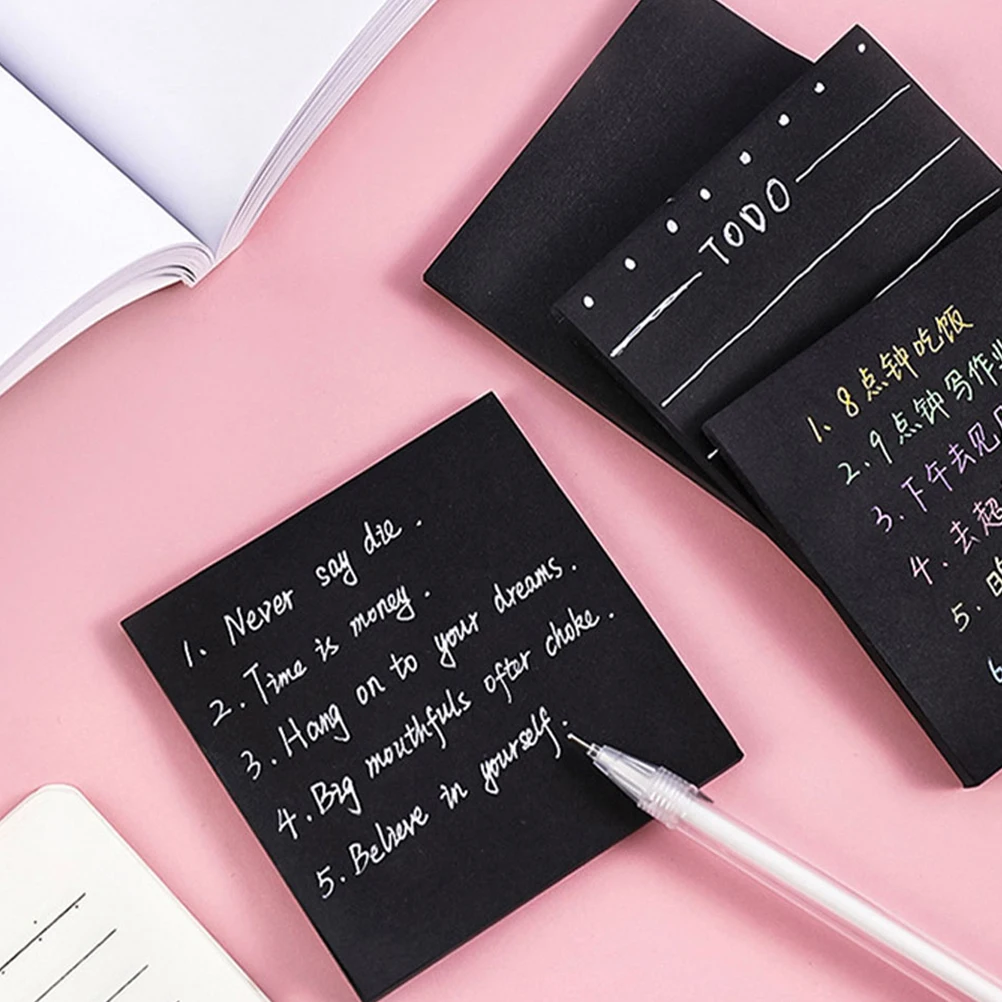 TODO
1. 8点钟吃饭
2. 9点钟写作业
3. 下午去见
4. 去超
5.
6
1. Never say die.
2. Time is money.
3. Hang on to your dreams.
4. Big mouthfuls ofter choke.
5. Believe in yourself.